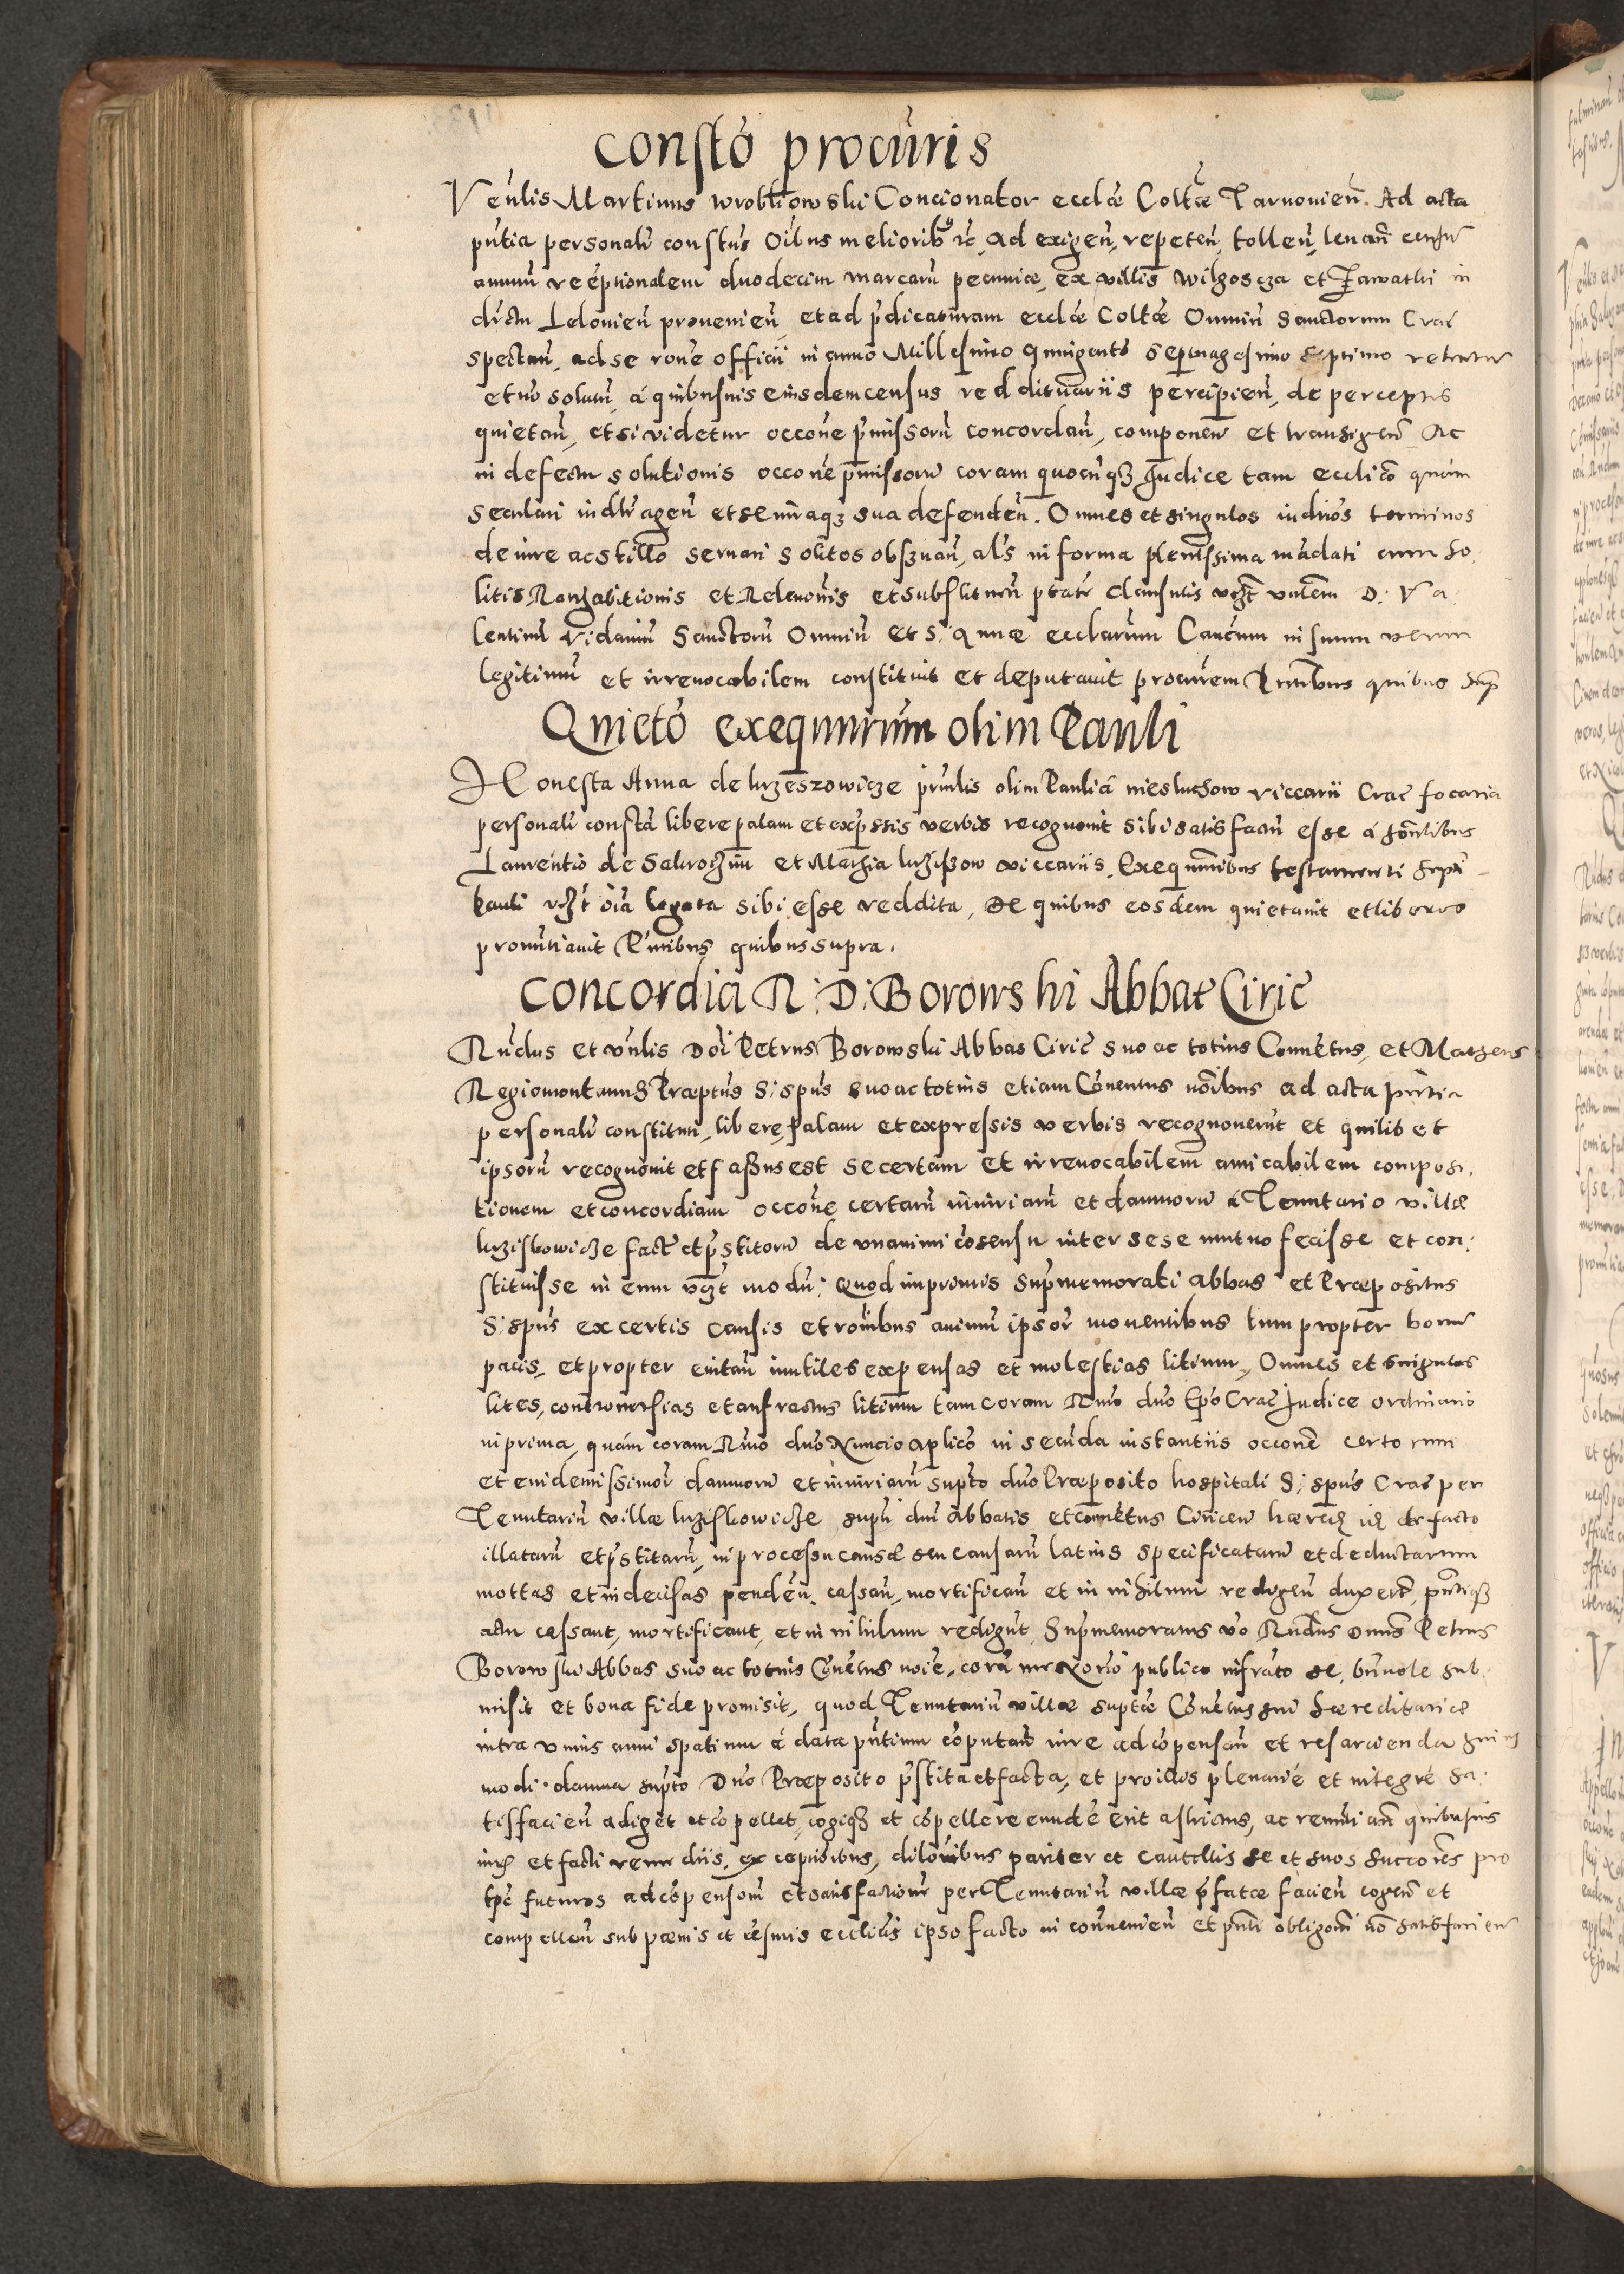 Constō procūris
Vēnlis Martinus wrobliowski Concionator ecclæ Coltæ Tarnovien̄. Ad acta
pūtia personalr̄ constus Oībus meliorib9 r̄c, ad exigen̄, repeten̄, tollen̄, levan̄ censū
annuū reēptionalem duodecim marcarū pecuniæ, ex villis wilgoscza et Zawathi in
dr̄ctu Lelovien̄ provenien̄, et ad p̄dicaturam ecclæ Coltæ Omniū Sanctorum Crac̄
spectan̄, ad se rōne officii in anno Millesimo quingentō septuagesimo septimo retentū
et nō solutū, á quibusvis eiusdem census reddituariis percipien̄, de perceptis
quietan̄, et si videtur occōne p̄missorū concordan̄, componen̄ et transigen̄ Ac
in defectu solutionis occōne p̄missorū coram quocūq3 Judice tam eccliċo quàm
seculari in dr̄ agen̄ et se iuraq3 sua defenden̄. Omnes et singulos iudrios terminos
de iure ac stillo servari solitos obs3van̄, al̄s in forma plenissima mādati cum so,
litis Ratihabitionis et Relevōnis et substituen̄ p̄tatē clausulis v3t vn̄lem D: Va,
lentinū Vidaviū Sanctorū Omniū et S: Annæ ecclarum Cancum in suum verum
legitimū et irrevocabilem constituit et deputavit procūrem P̄ntibus quibus sup̄
Quietō exequutrūm olim Pauli
Honesta Anna de krzeszowicze p̄vulis olim Pauli á niesluchow viccarii Crac̄ focaria
personalr̄ constā libere palam et exp̄ssis verbis recognovit sibi satisfactū esse á hōnlibus
Laurentio de Sakroczim et Mathia krzissow viccariis, Exequutoribus testamenti sup̄ti
Pauli v3t oīa legata sibi esse reddita, De quibus eosdem quietavit et liberos
pronūtiavit P̄ntibus quibus supra.
Concordia R: D: Borowski Abbat Ciric̄
Rn̄dus et vn̄lis Doī Petrus Borowski Abbas Ciric̄ suo ac totius Convētus, et Matheus
Regiomontanus Præptus S: sp̄us suo ac totius etiam Cōventus noībus ad acta pn̄tia
personalr̄ constituti, libere, palam et expressis verbis recognoverūt et quilibet
ipsorū recognovit et fassus est se certam et irrevocabilem amicabilem composi,
tionem et concordiam occōne certarū iniuriarū et damnorū á Tenutario villæ
krziskowicze factr̄ et p̄stitorū de unanimi cōsensu inter sese mutuo fecisse et con:
stituisse in eum v3t modū: Quod inprimis sup̄memorati Abbas et Præpositus
S: sp̄us ex certis causis et rōnibus animū ipsor̄ moventibus tum propter bonū
pacis, et propter evitan̄ inutiles expensas et molestias litium, Omnes et singulas
lites, controversias et anfractus litium tam coram Rmō dnō Ep̄o Crac̄ Judice ordinario
in prima, quám coram Rmō dnō Nuncio aplic̄o in secūda instantiis occōne certorum
et evidentissimor̄ damnorū et iniuriarū supto dnō Præposito hospitali S: sp̄us Crac̄ per
Tenutariū villæ krziskowicze supti dni Abbatis et convētus Ciricen̄ hæred de facto
illatarū et p̄stitarū, in processu causæ seu causarū latius specificatarū et deductarum
mottas et indecisas penden̄, cassan̄, mortifican̄ et in nihilum redigen̄ duxerūt, pn̄tiq3
actu cassant, mortificant, et in nihilum redigūt. Sup̄memoratus vō Rn̄dus Dnūs Petrus
Borowski Abbas suo ac totius Cōvētus noīe, corā me Notrio publico infrāto se, bn̄vole sub,
misit et bona fide promisit, quod Tenutariū villæ suptæ Cōvētus sui hæreditariæ
intra unius anni spatium á data pn̄tium cōputan̄ iure ad cōpensan̄ et resarcienda
modi damna supto Dnō Præposito p̄stita et facta, et pro illis plenarié et integré sa,
tisfacien̄ adiget et cōpellet, cogiq3 et cōpellere eundē erit astrictus, ac renūtian̄ quibusvis
iuris et facti remediis, exceptiōibus, dilōnibus pariter et cautelis se et suos succōres pro
tp̄e futuros ad cōpensōm et satisfactionē per Tenutariū villæ p̄fatæ facien̄ cogen̄ et
compellen̄ sub pœnis et cēsuris eccliċis ipso facto in convenien̄ et pn̄ti obligōni nō satisfacien̄